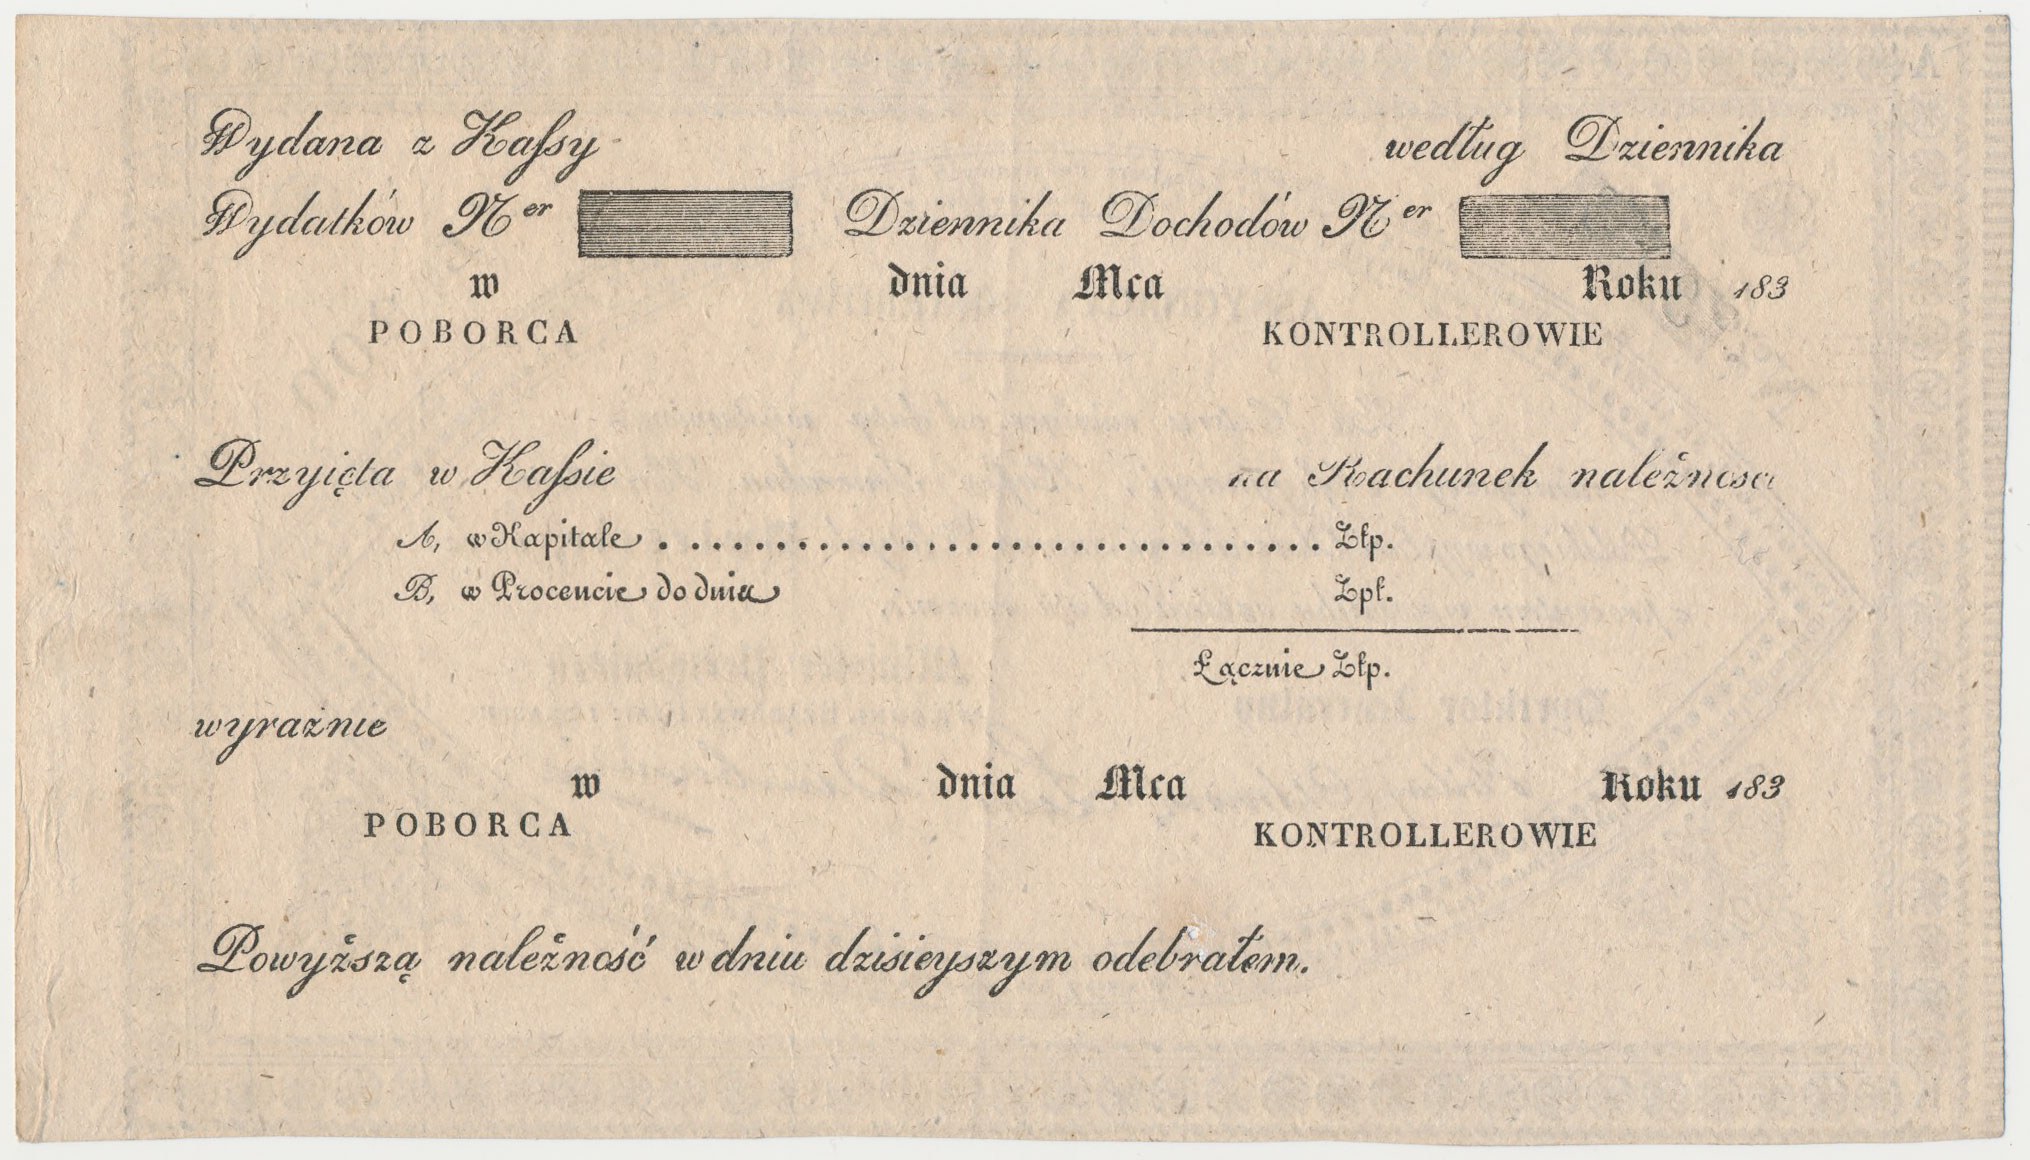 Wydana z Kaſsy według Dziennika
Wydatków Nᵉʳ Dziennika Dochodów Nᵉʳ
w dnia Mca Roku 183
POBORCA KONTROLLEROWIE
Przyięta w Kaſsie na Rachunek należnosci
A, w Kapitale . . . . . . . . . . . . . . . . . . . . . . . . Złp.
B, w Procencie do dnia Zpł.
Łącznie Złp.
wyraźnie
w dnia Mca Roku 183
POBORCA KONTROLLEROWIE
Powyższą należność w dniu dzisieyszym odebrałem.